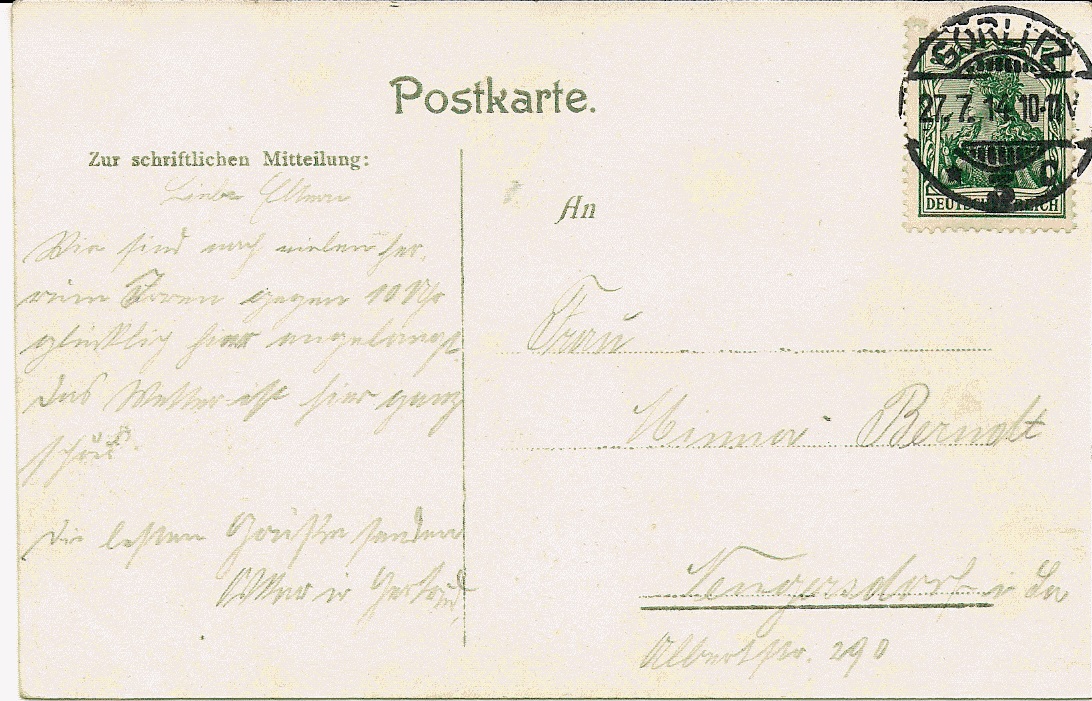 Postkarte.
GÖRLITZ
27.7.14.10-11N
* 2 C
DEUTSCHES REICH
Zur schriftlichen Mitteilung:
Liebe Eltern
An
Wir sind nach vielem her-
um gegen 10 Uhr
glücklich hier angelangt
Das Wetter ist hier ganz
schön.
Frau
Minna Berndt
Die besten Grüße senden
u Gertrud
i La
Albertstr. 290